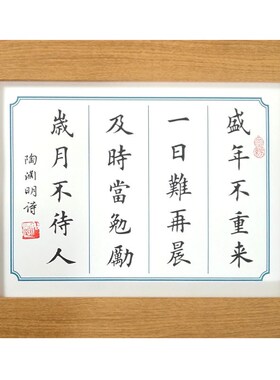 盛年不重来
一日難再晨
及時當勉勵
歲月不待人
陶淵明詩